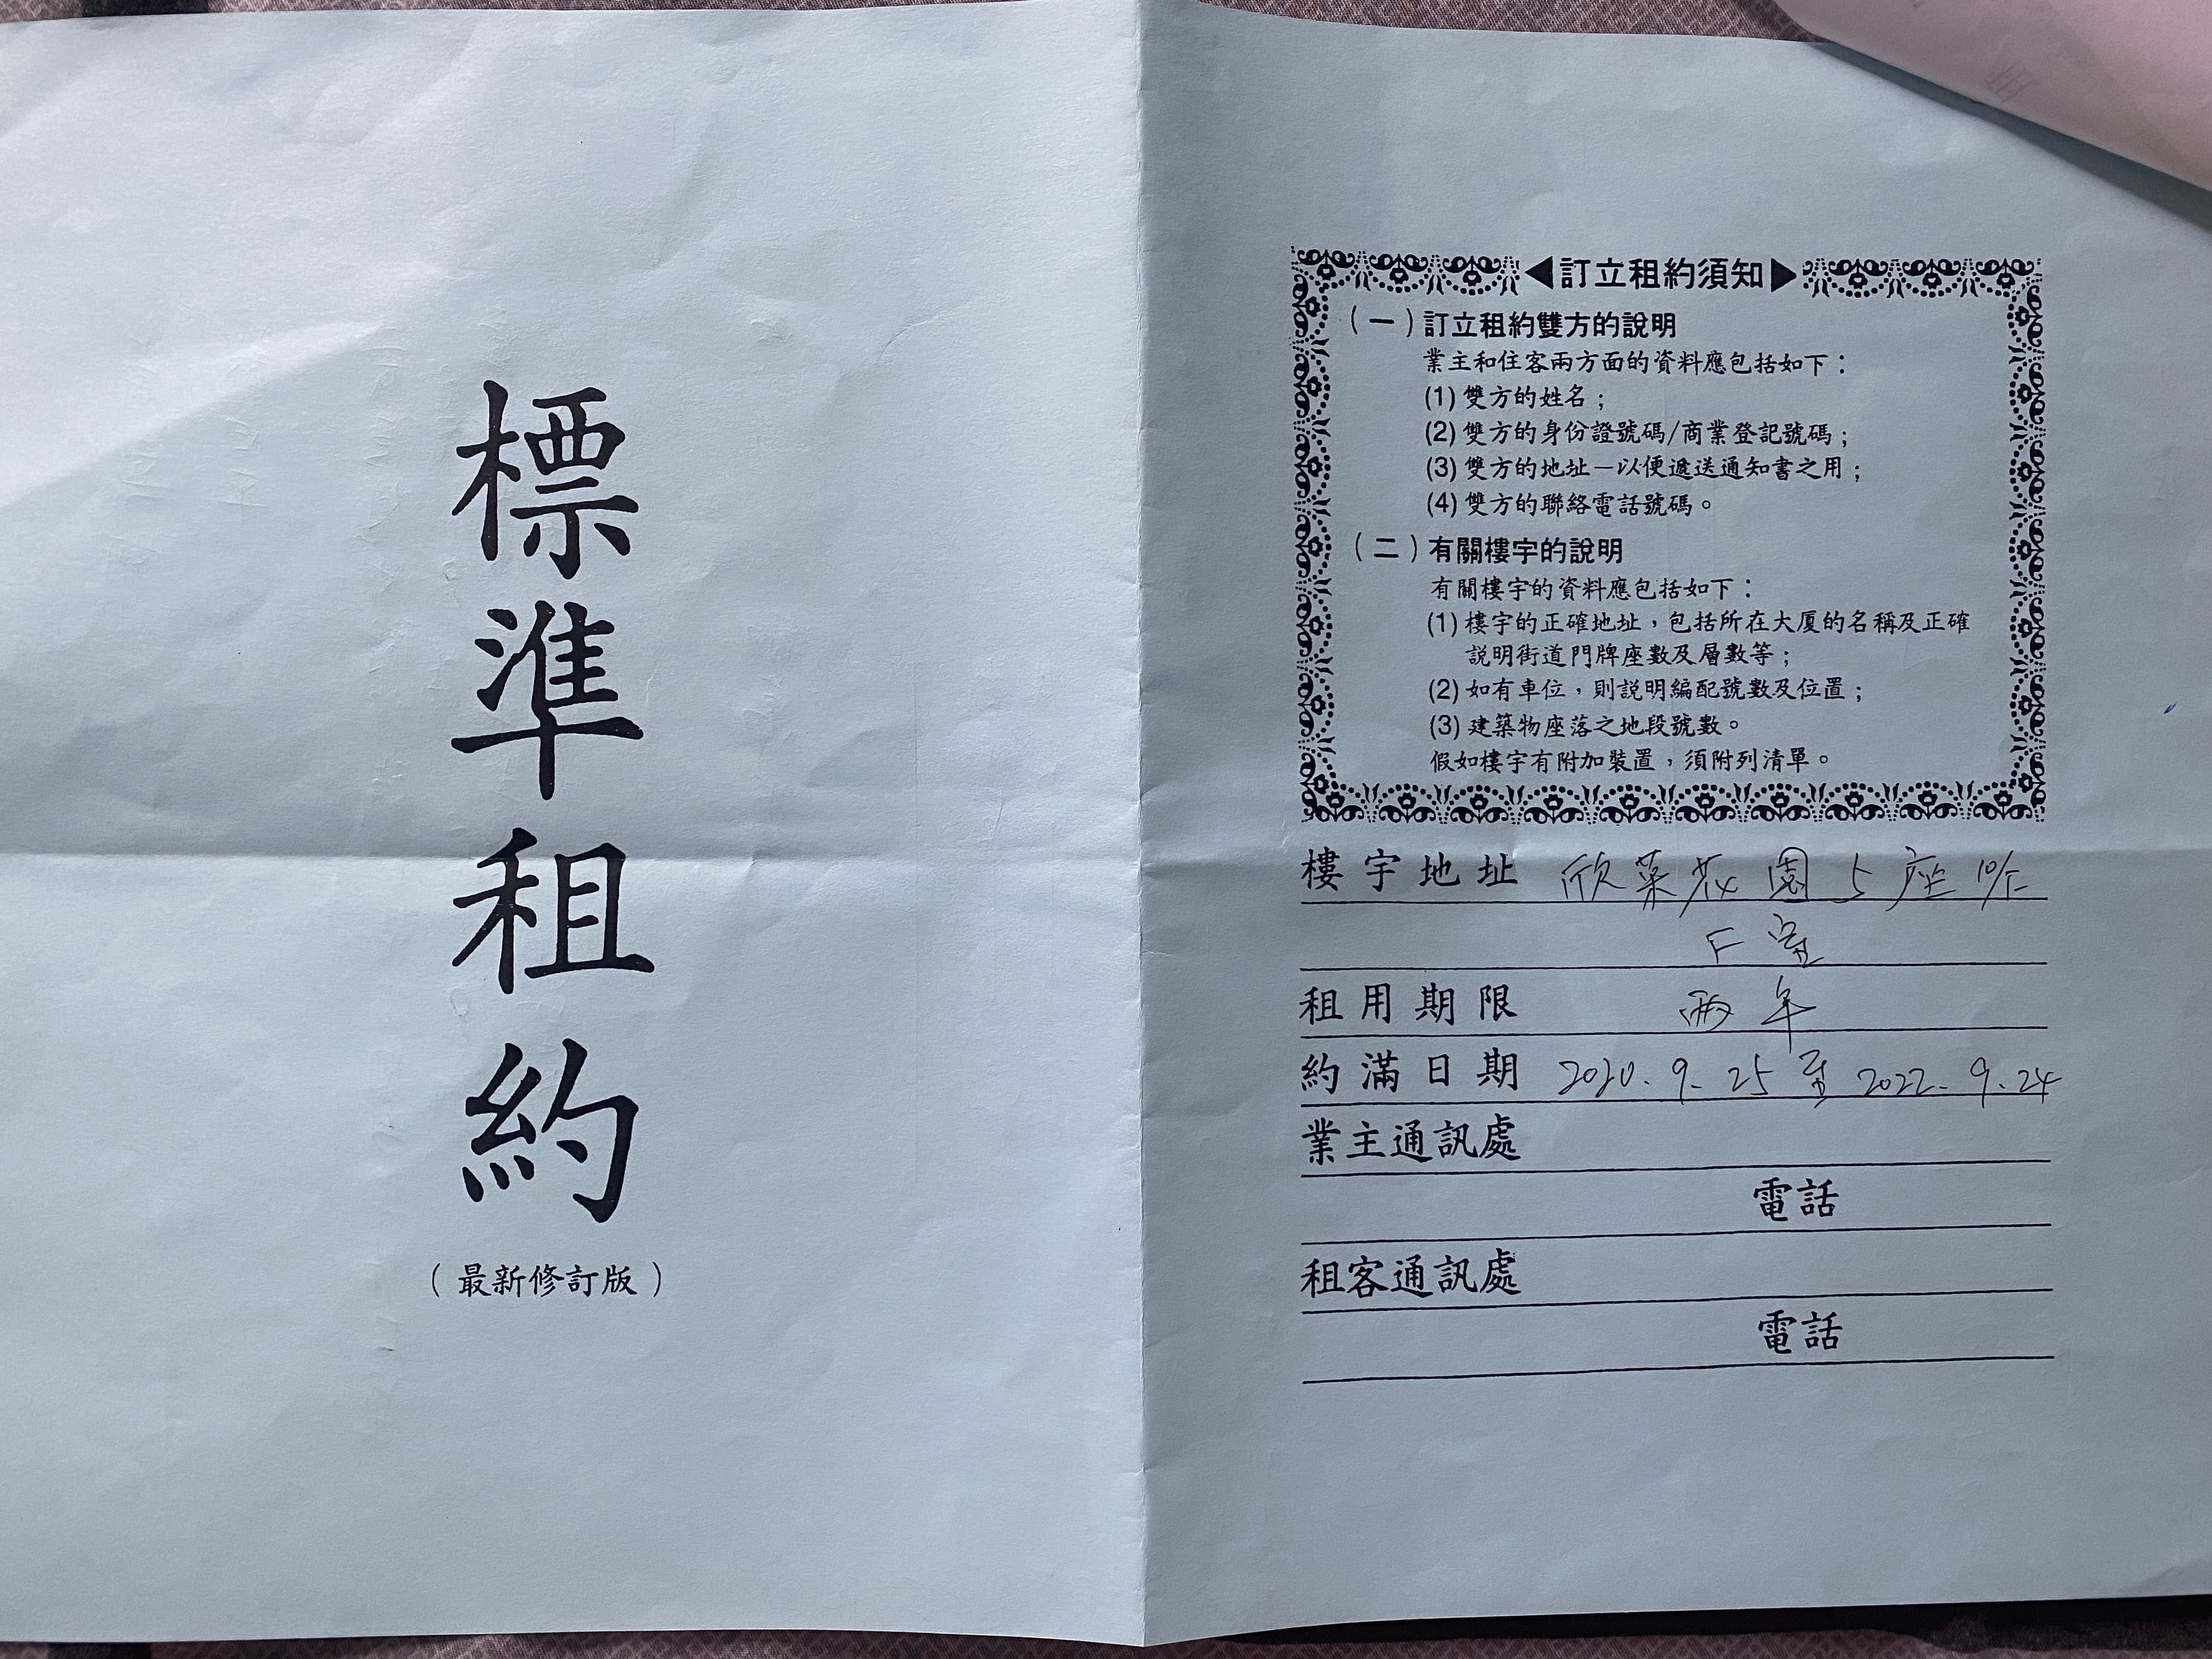 標準租約
（最新修訂版）
◀訂立租約須知▶
（一）訂立租約雙方的說明
業主和住客兩方面的資料應包括如下：
(1) 雙方的姓名；
(2) 雙方的身份證號碼/商業登記號碼；
(3) 雙方的地址－以便遞送通知書之用；
(4) 雙方的聯絡電話號碼。
（二）有關樓宇的說明
有關樓宇的資料應包括如下：
(1) 樓宇的正確地址，包括所在大厦的名稱及正確
說明街道門牌座數及層數等；
(2) 如有車位，則說明編配號數及位置；
(3) 建築物座落之地段號數。
假如樓宇有附加裝置，須附列清單。
樓宇地址 欣葉花園 5 座 10/F
F 室
租用期限 兩年
約滿日期 2020.9.25 至 2022.9.24
業主通訊處
電話
租客通訊處
電話